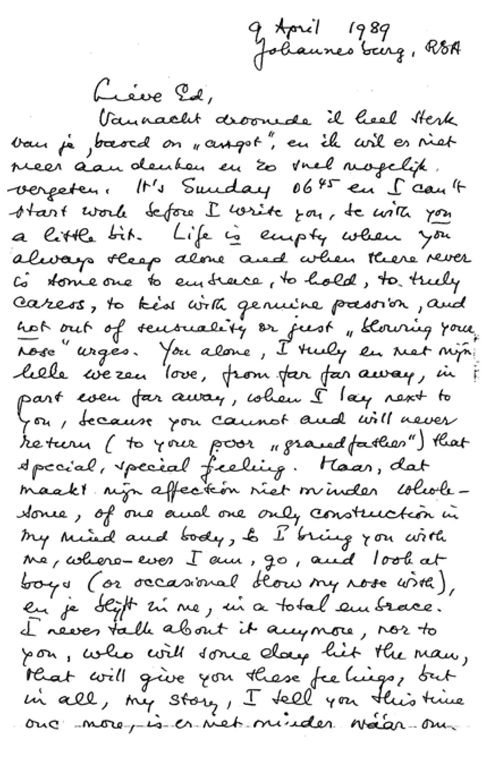 9 April 1989
Johannesburg, RSA
Liéve Ed,
Vannacht droomde ik heel sterk
van je, based on „angst", en ik wil er niet
meer aan denken en zo snel mogelijk
vergeten. It's Sunday 06 45 en I can't
start work before I write you, be with you
a little bit. Life is empty when you
always sleep alone and when there never
is someone to embrace, to hold, to truly
caress, to kiss with genuine passion, and
not out of sensuality or just „blowing your
nose" urges. You alone, I truly en met mijn
hele wezen love, from far far away, in
part even far away, when I lay next to
you, because you cannot and will never
return (to your poor „grandfather") that
special, special feeling. Maar, dat
maakt mijn affection niet minder whole-
some, of one and one only construction in
my mind and body, & I bring you with
me, where-ever I am, go, and look at
boys (or occasional blow my nose with),
en je blijft in me, in a total embrace.
I never talk about it anymore, nor to
you, who will some day hit the man,
that will give you these feelings, but
in all, my story, I tell you this time
one more, is er niet minder wáár om.